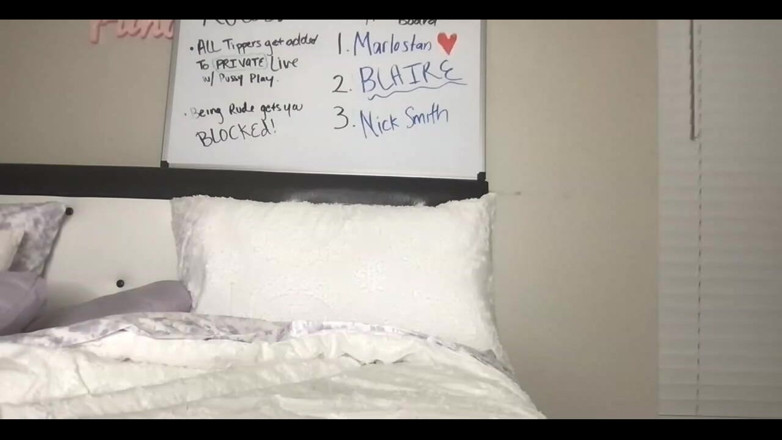 • ALL Tippers get added
To PRIVATE Live
w/ Pussy Play.
• Being Rude gets you
BLOCKED!
Board
1. Marlostan ❤
2. BLAIRE
3. Nick Smith